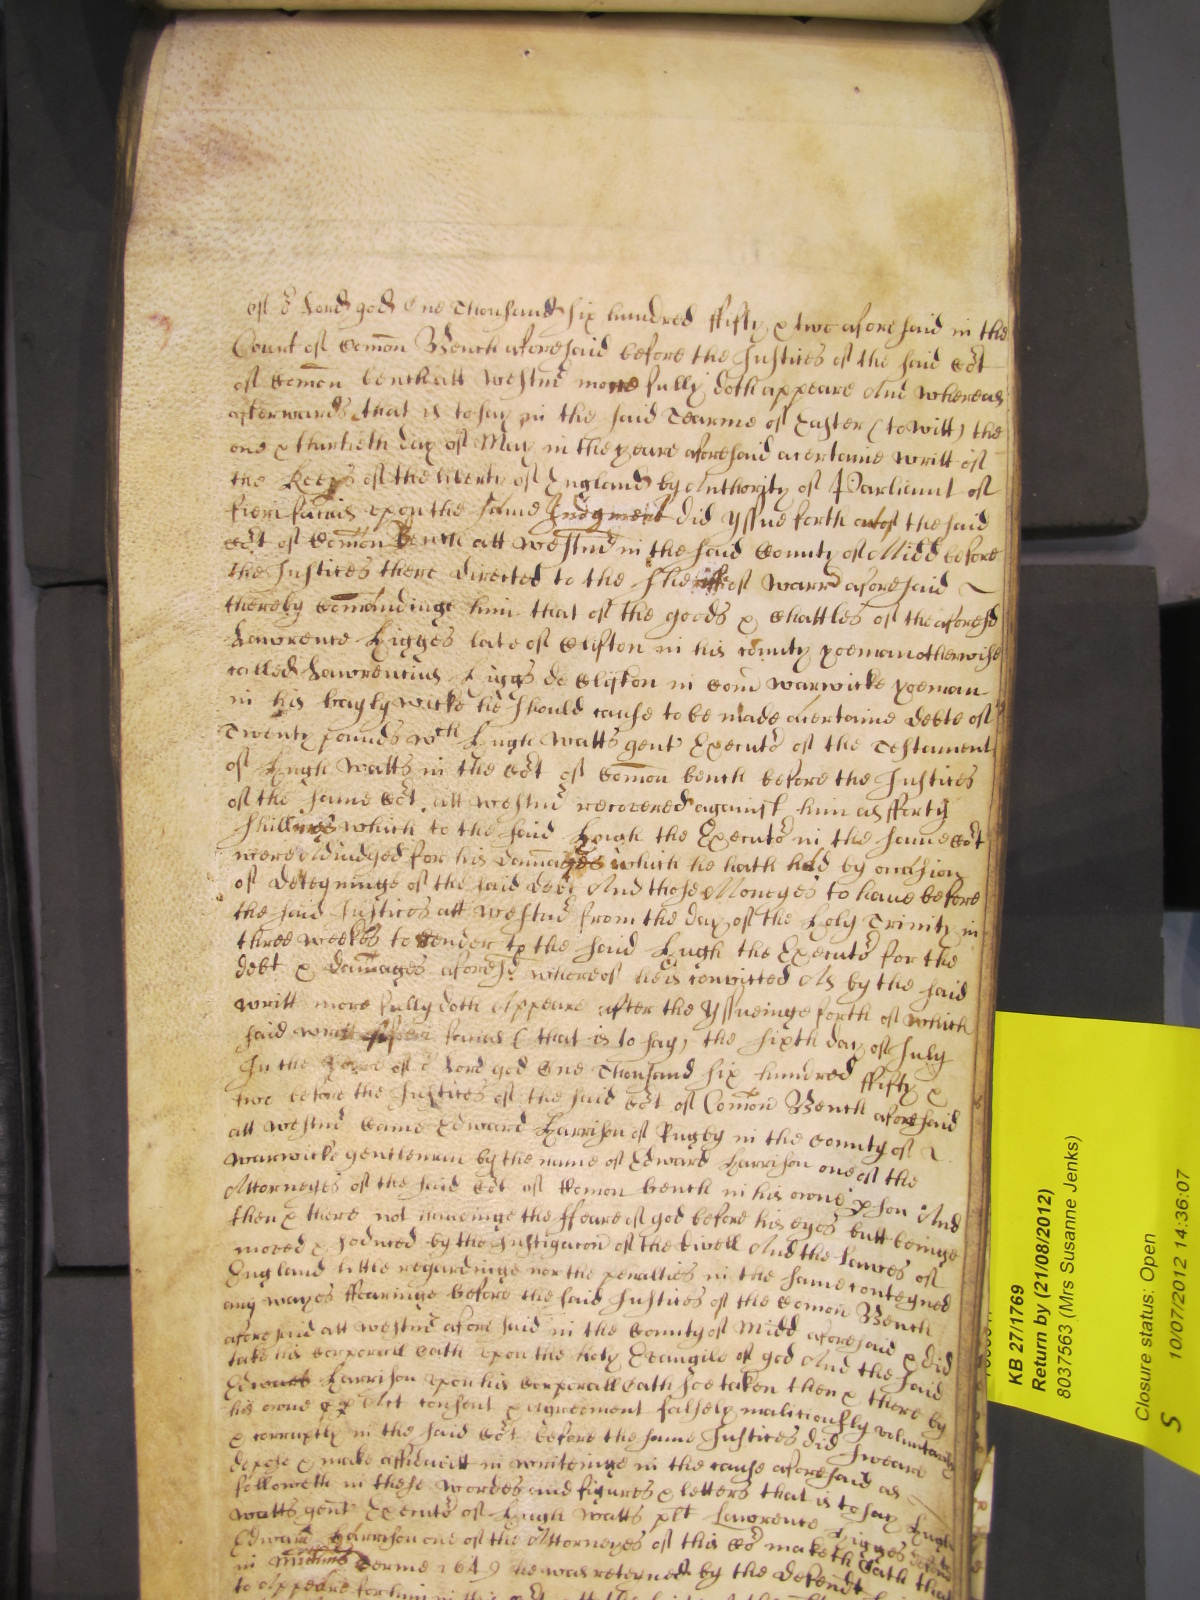 of o Lord god One Thousand six hundred ffifty & two aforesaid in the
Court of Comon Bench aforesaid before the Justices of the said Cot
of Comon bench att Westmr more fully doth appeare And whereas
afterwards that is to say in the said Tearme of Easter (to witt) the
one & thirtieth day of May in the yeare aforesaid a certaine writt of
the Keeps of the liberty of England by Authority of Parliamt of
fieri facias upon the same Judgment did yssue forth out of the said
Cot of Comon Bench att Westmr in the said County of Midd before
the Justices there directed to the Sheriffe of Warr aforesaid
thereby Comandinge him that of the goods & Chattles of the aforesd
Lawrence Higges late of Clifton in his county yoeman otherwise
called Lawrencius Higgs de Clifton in Com Warwicke yoeman
in his baylywicke he should cause to be made a certaine debte of
Twenty pounds wch Hugh Watts gent Executor of the Testament
of Hugh Watts in the Cot of Comon bench before the Justices
of the same Cot att Westmr recovered against him as fforty
shillings which to the said Hugh the Executor in the same Cot
were Adiudged for his damages which he hath had by occasion
of deteyninge of the said debt And those Moneyes to have before
the said Justices att Westmr from the day of the Holy Trinity in
three weekes to render to the said Hugh the Executor for the
debt & damages aforesd whereof he is convicted As by the said
writt more fully doth Appeare after the yssueinge forth of which
said writt of fieri facias (that is to say) the sixth day of July
In the yeare of o Lord god One Thousand six hundred ffifty &
two before the Justices of the said Cot of Comon Bench aforesaid
att Westmr Came Edward Harrison of Rugby in the County of
Warwicke gentleman by the name of Edward Harrison one of the
Attorneyes of the said Cot of Comon bench in his owne pson And
then & there not haveinge the ffeare of god before his eyes butt beinge
moved & seduced by the Instigacon of the divell And the Lawes of
England little regardinge nor the penalties in the same conteyned
any wayes ffearinge before the said Justices of the Comon Bench
aforesaid att Westmr aforesaid in the County of Midd aforesaid & did
take his corporall Oath upon the holy Evangile of god And the said
Edward Harrison upon his Corporall Oath soe taken then & there by
his owne pp Act consent & agreement falsely malitiously voluntarily
& corruptly in the said Cot before the same Justices did sweare
depose & make affidavitt in writeinge in the cause aforesaid as
followeth in these wordes and figures & letters that is to say Hugh
Watts gent Executor of Hugh Watts plt Lawrence Higges defendt
Edward Harrison one of the Attorneyes of this Cot maketh Oath that
in Michas Terme 1649 he was returned by the defendt
to Appeare for him in
KB 27/1769
Return by (21/08/2012)
8037563 (Mrs Susanne Jenks)
Closure status: Open
10/07/2012 14:36:07
S